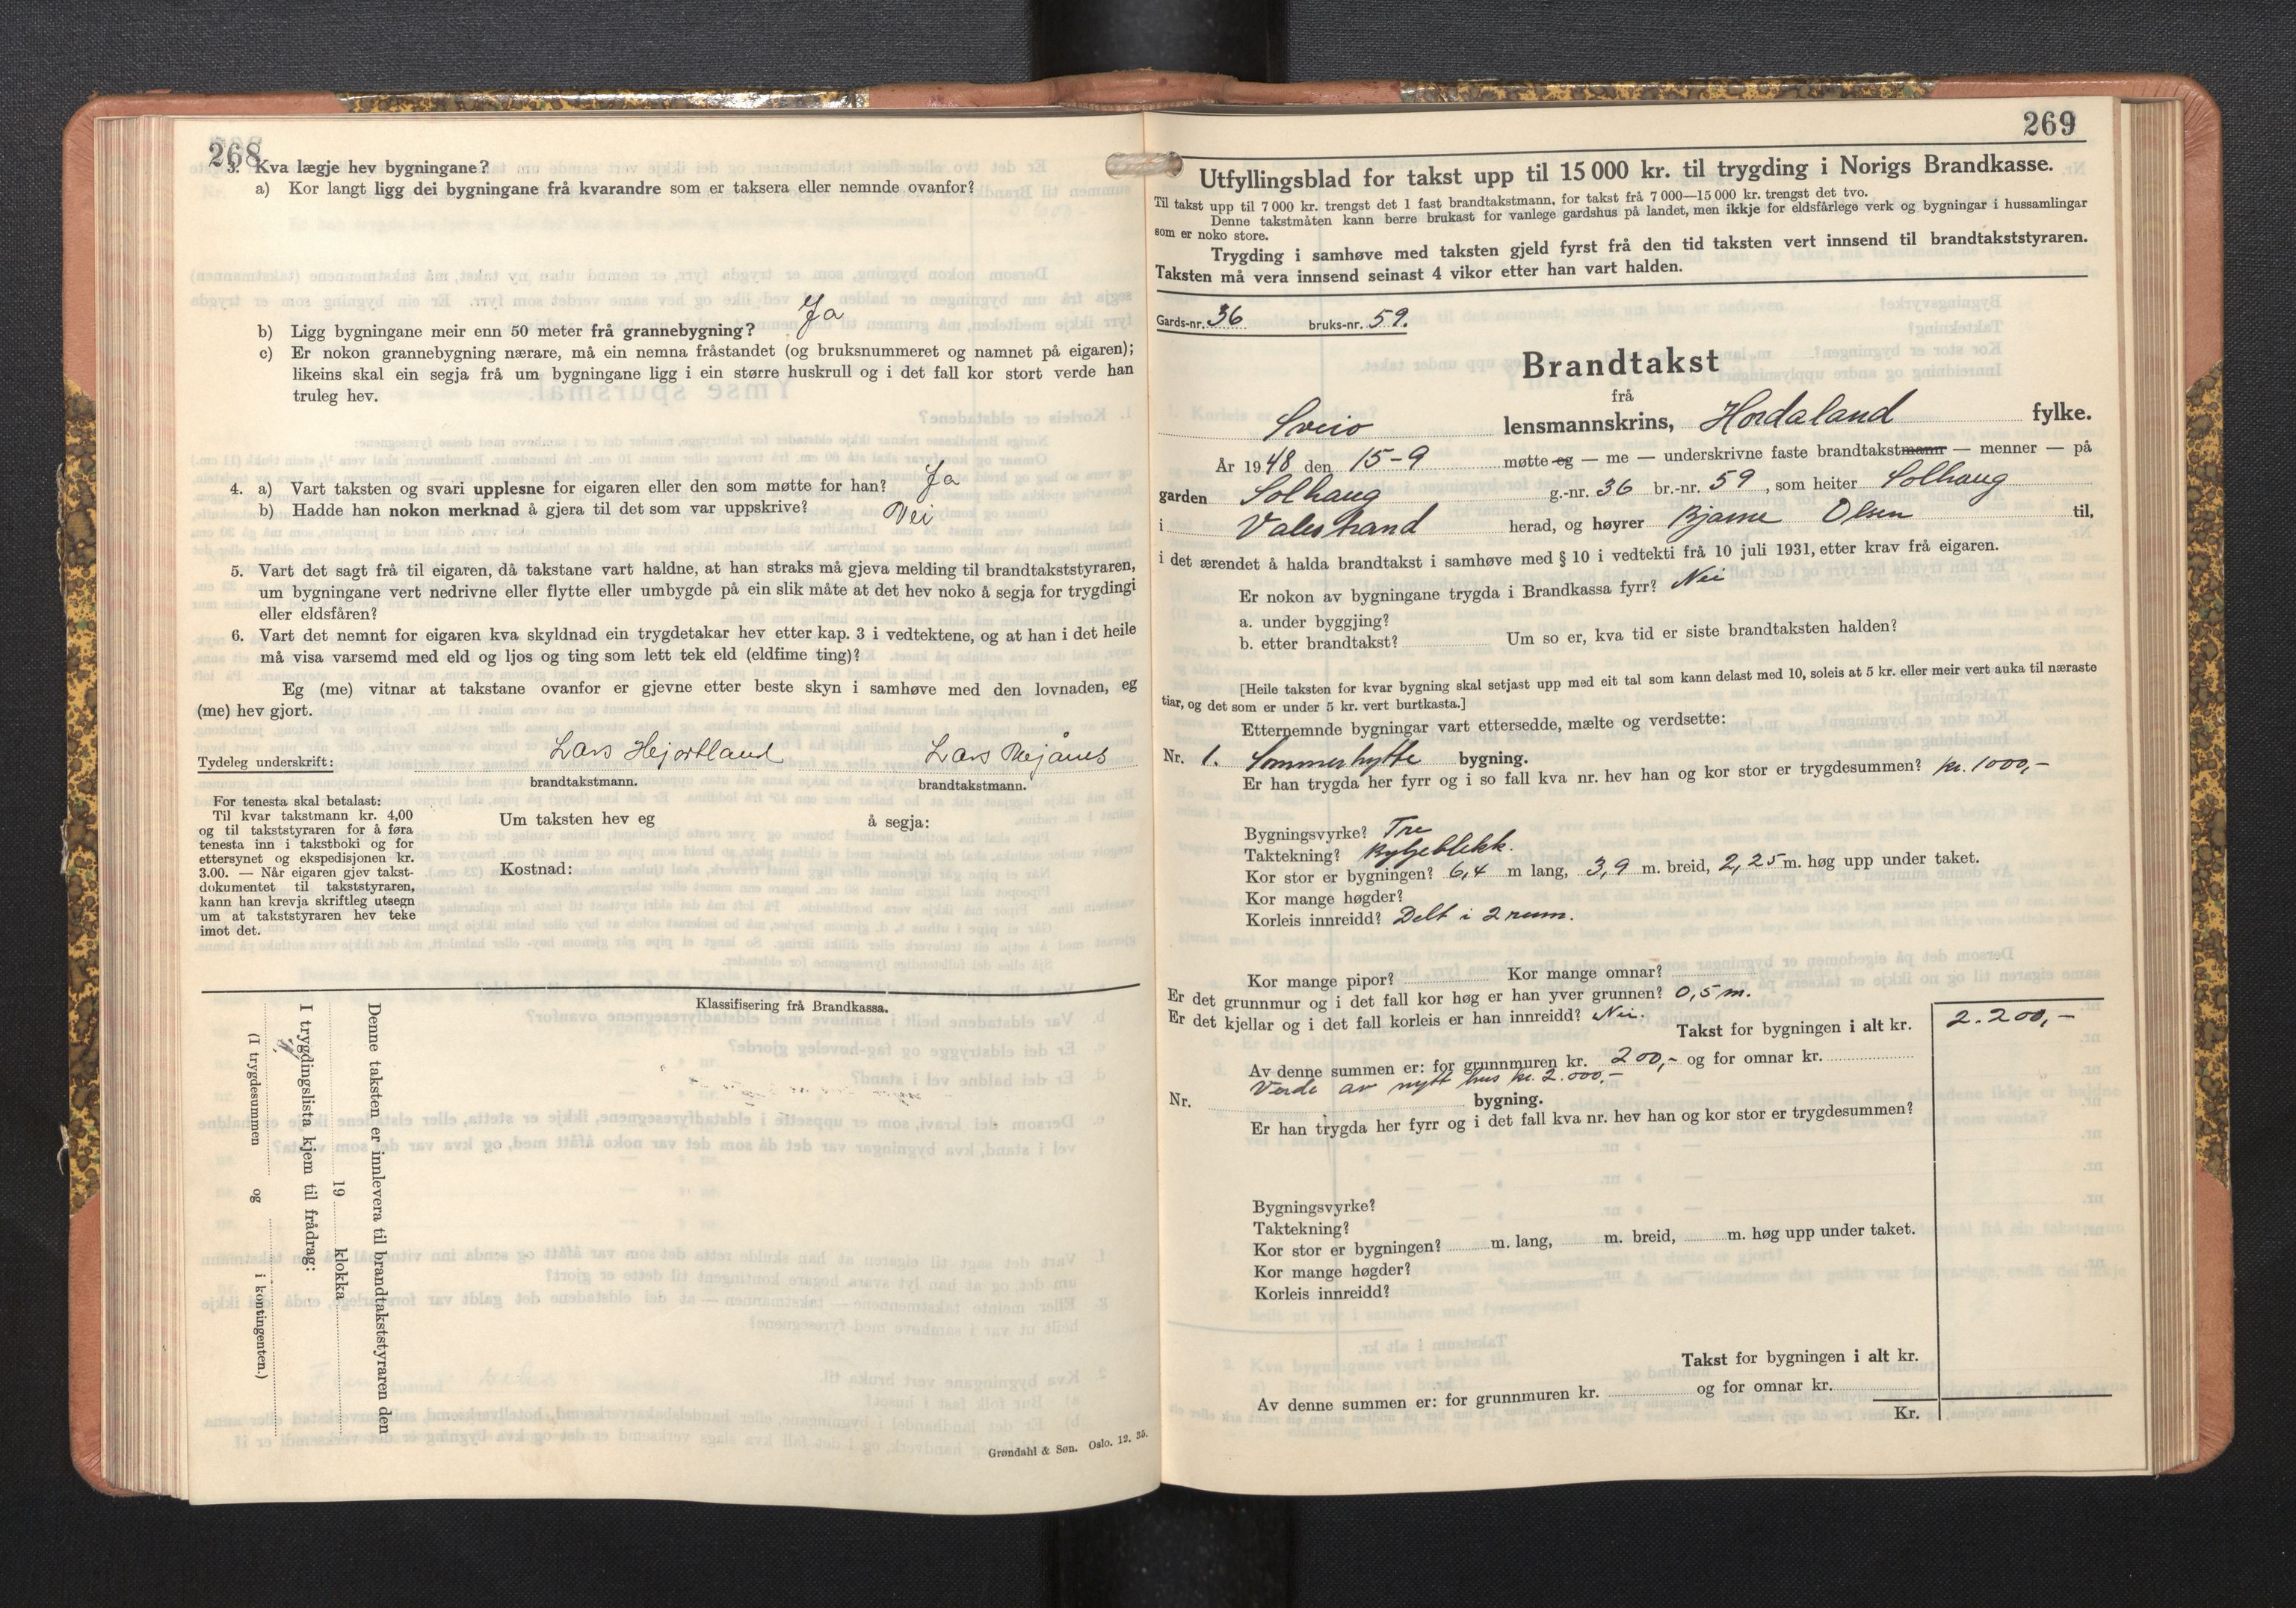 268
3. Kva lægje hev bygningane?
a) Kor langt ligg dei bygningane frå kvarandre som er taksera eller nemnde ovanfor?
Ja
b) Ligg bygningane meir enn 50 meter frå grannebygning?
c) Er nokon grannebygning nærare, må ein nemna fråstandet (og bruksnummeret og namnet på eigaren);
likeins skal ein segja frå um bygningane ligg i ein større huskrull og i det fall kor stort verde han
truleg hev.
4. a) Vart taksten og svari upplesne for eigaren eller den som møtte for han? Ja
b) Hadde han nokon merknad å gjera til det som var uppskrive? Nei
5. Vart det sagt frå til eigaren, då takstane vart haldne, at han straks må gjeva melding til brandtakststyraren,
um bygningane vert nedrivne eller flytte eller umbygde på ein slik måte at det hev noko å segja for trygdingi
eller eldsfåren?
6. Vart det nemnt for eigaren kva skyldnad ein trygdetakar hev etter kap. 3 i vedtektene, og at han i det heile
må visa varsemd med eld og ljos og ting som lett tek eld (eldfime ting)?
Eg (me) vitnar at takstane ovanfor er gjevne etter beste skyn i samhøve med den lovnaden, eg
(me) hev gjort.
Tydeleg underskrift: Lars Hejortland Lars
brandtakstmann. brandtakstmann.
For tenesta skal betalast:
Til kvar takstmann kr. 4,00
og til takststyraren for å føra
tenesta inn i takstboki og for
ettersynet og ekspedisjonen kr.
3.00. — Når eigaren gjev takst-
dokumentet til takststyraren,
kann han krevja skriftleg utsegn
um at takststyraren hev teke
imot det.
Um taksten hev eg å segja:
Kostnad:
Klassifisering frå Brandkassa.
Denne taksten er innlevera til brandtakststyraren den
19 klokka
I trygdingslista kjem til frådrag:
(I trygdesummen og i kontingenten.)
Grøndahl & Søn. Oslo. 12. 35.
269
Utfyllingsblad for takst upp til 15 000 kr. til trygding i Norigs Brandkasse.
Til takst upp til 7 000 kr. trengst det 1 fast brandtakstmann, for takst frå 7 000—15 000 kr. trengst det tvo.
Denne takstmåten kann berre brukast for vanlege gardshus på landet, men ikkje for eldsfårlege verk og bygningar i hussamlingar
som er noko store.
Trygding i samhøve med taksten gjeld fyrst frå den tid taksten vert innsend til brandtakststyraren.
Taksten må vera innsend seinast 4 vikor etter han vart halden.
Gards-nr. 36 bruks-nr. 59.
Brandtakst
frå
Sveio lensmannskrins, Hordaland fylke.
År 1948 den 15-9 møtte eg — me — underskrivne faste brandtakstmann — menner — på
garden Solhaug g.-nr. 36 br.-nr. 59, som heiter Solhaug
i Valestrand herad, og høyrer Bjarne Olsen til,
i det ærendet å halda brandtakst i samhøve med § 10 i vedtekti frå 10 juli 1931, etter krav frå eigaren.
Er nokon av bygningane trygda i Brandkassa fyrr? Nei
a. under byggjing?
b. etter brandtakst? Um so er, kva tid er siste brandtaksten halden?
[Heile taksten for kvar bygning skal setjast upp med eit tal som kann delast med 10, soleis at 5 kr. eller meir vert auka til næraste
tiar, og det som er under 5 kr. vert burtkasta.]
Etternemnde bygningar vart ettersedde, mælte og verdsette:
Nr. 1. Sommerhytte bygning.
Er han trygda her fyrr og i so fall kva nr. hev han og kor stor er trygdesummen? kr. 1000,-
Bygningsvyrke? Tre
Taktekning? Bylgeblekk.
Kor stor er bygningen? 6,4 m lang, 3,9 m. breid, 2,25 m. høg upp under taket.
Kor mange høgder?
Korleis innreidd? Delt i 2 rum.
Kor mange pipor? Kor mange omnar?
Er det grunnmur og i det fall kor høg er han yver grunnen? 0,5 m.
Er det kjellar og i det fall korleis er han innreidd? Nei.
Takst for bygningen i alt kr. 2.200,-
Av denne summen er: for grunnmuren kr. 200,- og for omnar kr.
Verde av nytt hus kr. 2.000,-
Nr. bygning.
Er han trygda her fyrr og i det fall kva nr. hev han og kor stor er trygdesummen?
Bygningsvyrke?
Taktekning?
Kor stor er bygningen? m. lang, m. breid, m. høg upp under taket.
Kor mange høgder?
Korleis innreidd?
Takst for bygningen i alt kr.
Av denne summen er: for grunnmuren kr. og for omnar kr.
Kr.